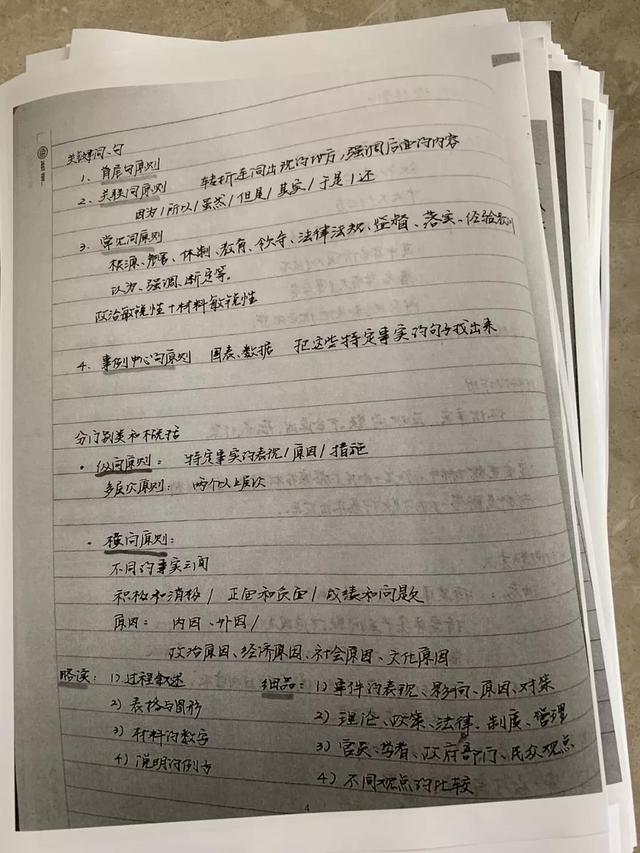 关键词、句
1. 首尾句原则
2. 关联词原则 转折连词出现的地方,强调后面的内容
因为/所以/虽然/但是/其实/于是/还
3. 常见词原则
根源、危害、体制、教育、领导、法律法规、监督、落实、经验教训
认为、强调、断定等。
政治敏锐性+材料敏锐性
4. 事例中心句原则 图表、数据 把这些特定事实的句子找出来
分门别类和概括
· 纵向原则: 特定事实的表现/原因/措施
多层次原则: 两个以上层次
· 横向原则:
不同的事实之间
积极和消极/ 正面和负面/ 成绩和问题
原因: 内因、外因/
政治原因、经济原因、社会原因、文化原因
略读: 1) 过程叙述 细品: 1) 事件的表现、影响、原因、对策
2) 表格与图形 2) 理论、政策、法律、制度、管理
3) 材料的数字 3) 官员、学者、政府部门、民众观点
4) 说明的例子 4) 不同观点的比较
4